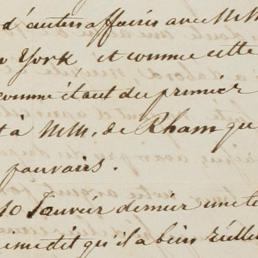 d'autres affaires avec M M
York et comme cette
comme étant du premier
à MM. de Rham qu
pouvais.
10 Janvier dernier une te
me dit qu'il a bien réelle